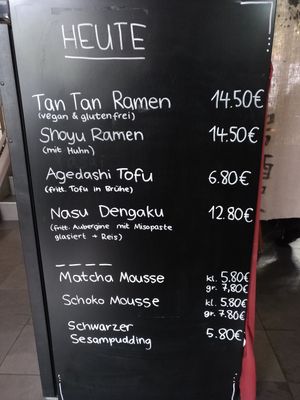 HEUTE
Tan Tan Ramen 14.50€
(vegan & glutenfrei)
Shoyu Ramen 14.50€
(mit Huhn)
Agedashi Tofu 6.80€
(fritt. Tofu in Brühe)
Nasu Dengaku 12.80€
(fritt. Aubergine mit Misopaste
glasiert + Reis)
Matcha Mousse kl. 5.80€
gr. 7,80€
Schoko Mousse kl. 5.80€
gr. 7.80€
Schwarzer
Sesampudding 5.80€